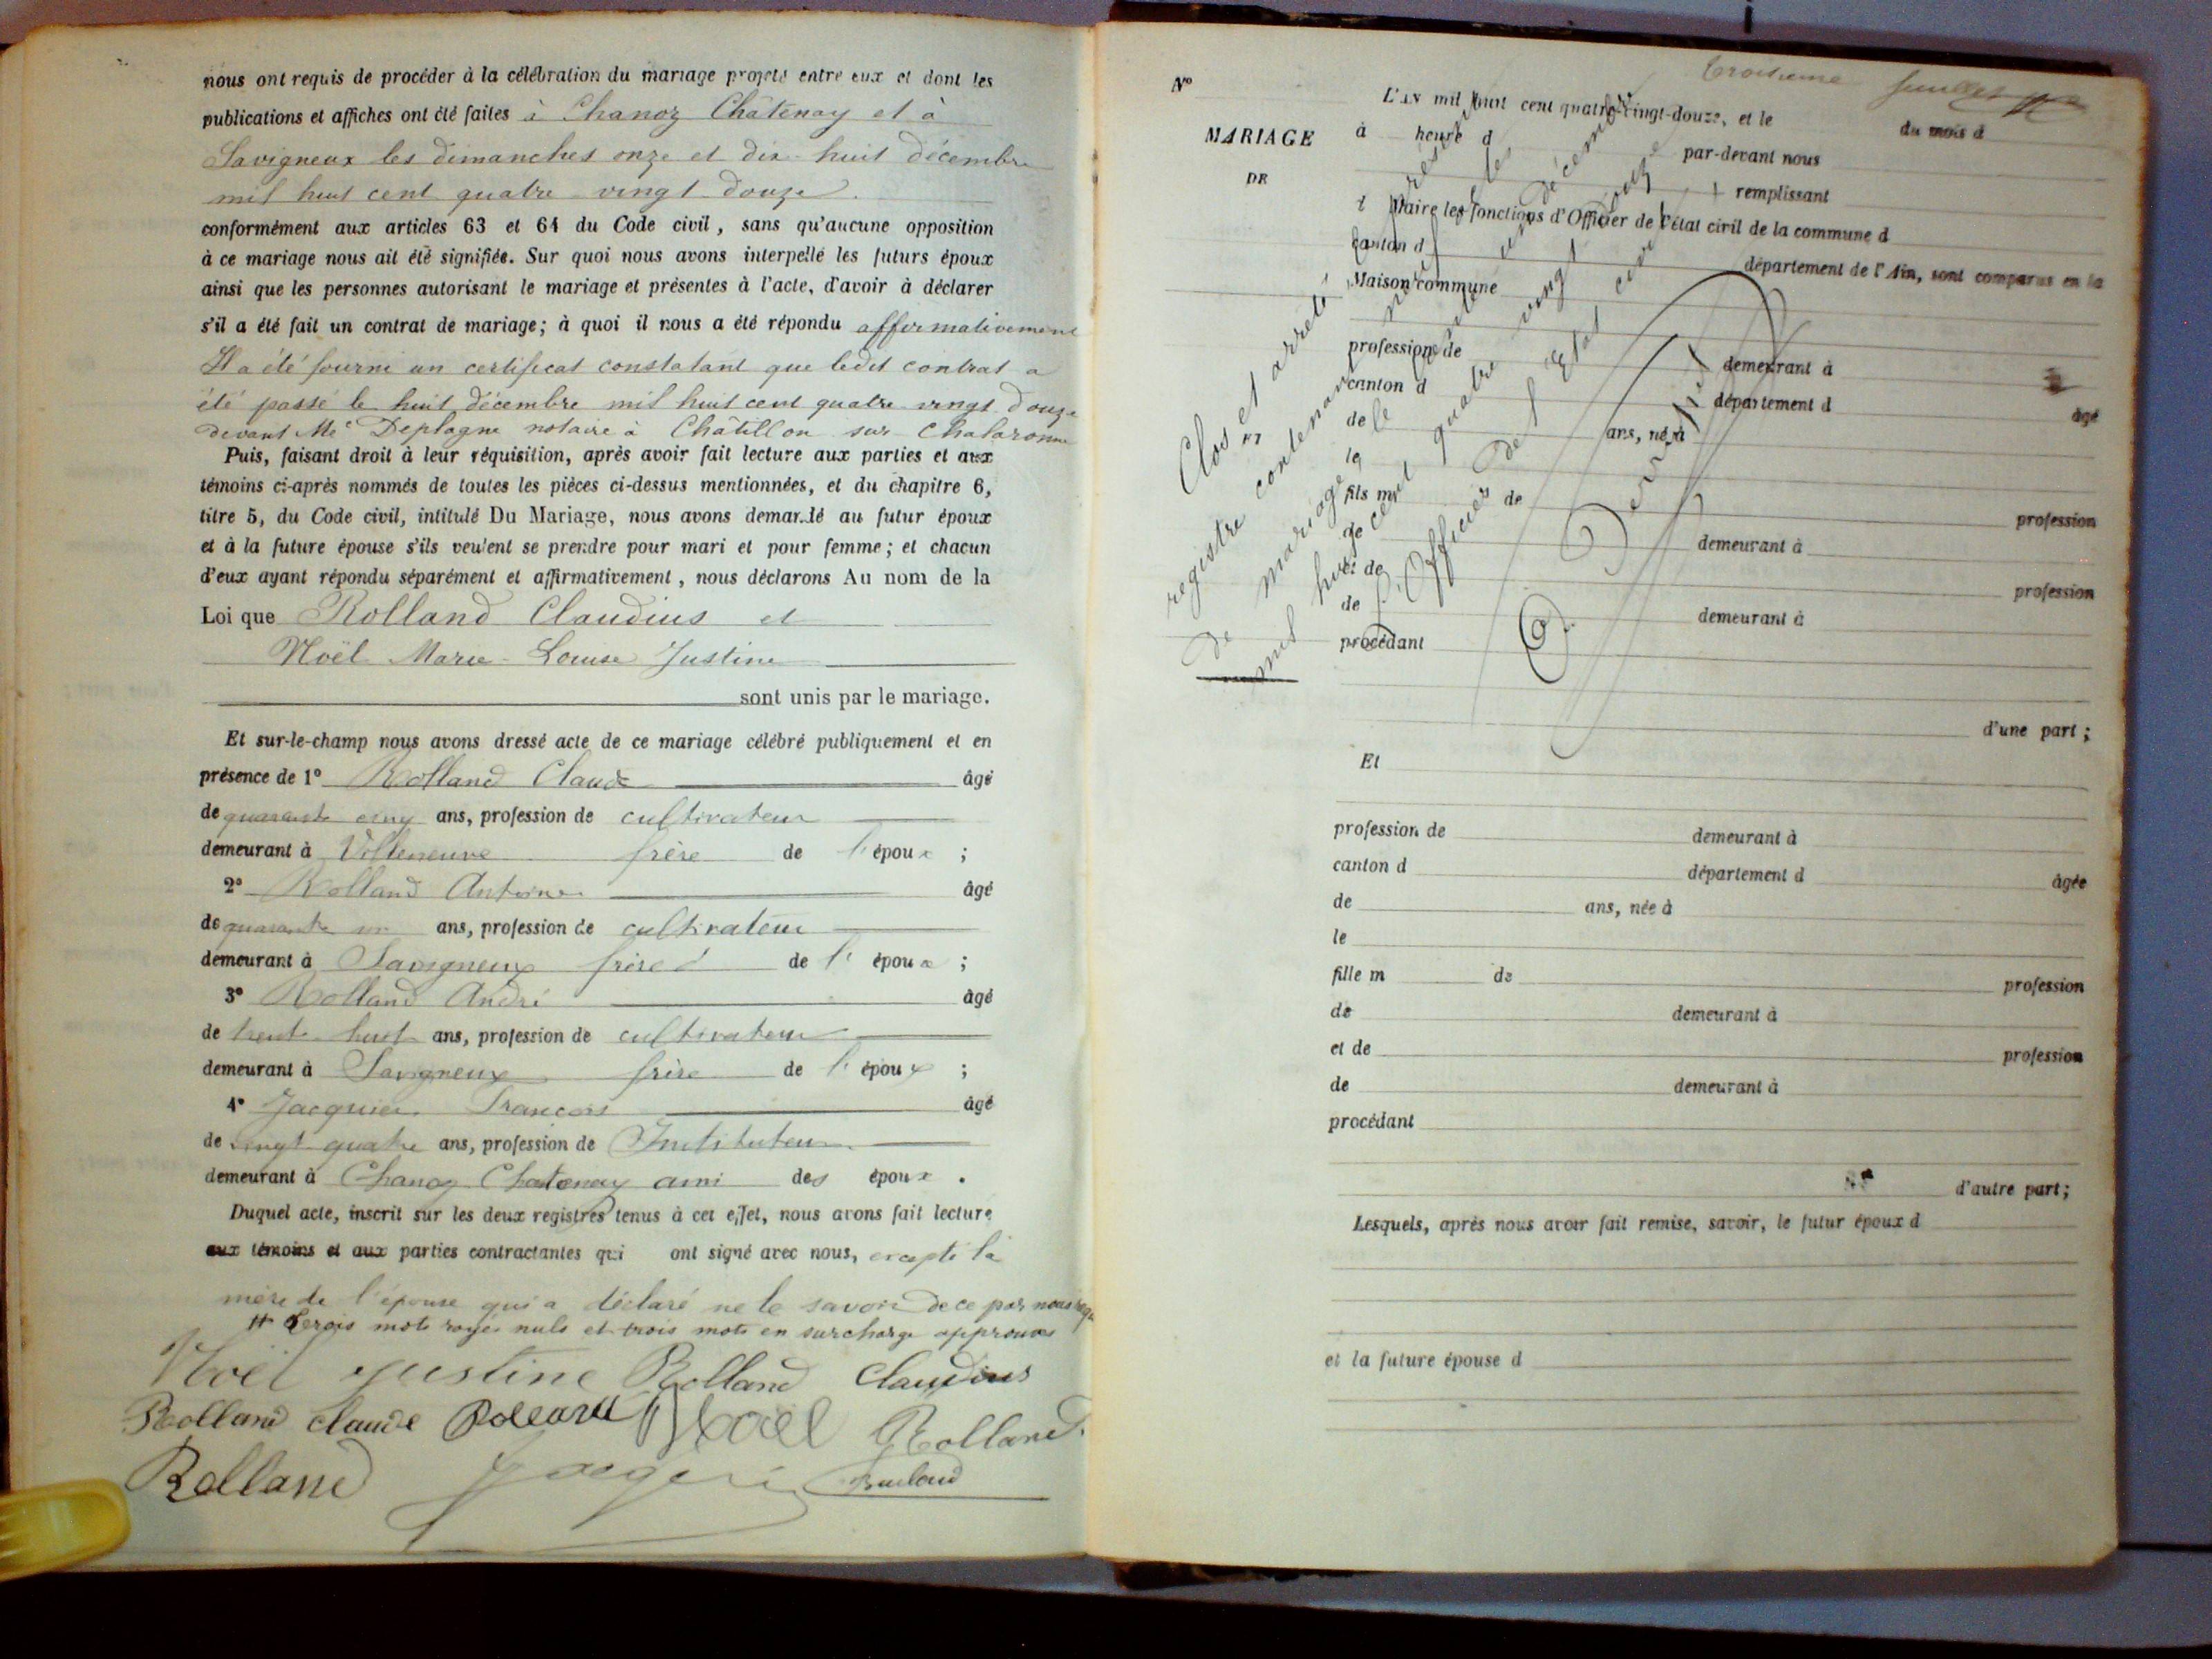 nous ont requis de procéder à la célébration du mariage projeté entre eux et dont les
publications et affiches ont été faites à Chanoz Châtenay et à
Savigneux les dimanches onze et dix-huit décembre
mil huit cent quatre-vingt-douze.
conformément aux articles 63 et 64 du Code civil, sans qu'aucune opposition
à ce mariage nous ait été signifiée. Sur quoi nous avons interpellé les futurs époux
ainsi que les personnes autorisant le mariage et présentes à l'acte, d'avoir à déclarer
s'il a été fait un contrat de mariage; à quoi il nous a été répondu affirmativement
Il a été fourni un certificat constatant que ledit contrat a
été passé le huit décembre mil huit cent quatre vingt douze
devant Me Deplagne notaire à Châtillon sur Chalaronne
Puis, faisant droit à leur réquisition, après avoir fait lecture aux parties et aux
témoins ci-après nommés de toutes les pièces ci-dessus mentionnées, et du chapitre 6,
titre 5, du Code civil, intitulé Du Mariage, nous avons demandé au futur époux
et à la future épouse s'ils veulent se prendre pour mari et pour femme; et chacun
d'eux ayant répondu séparément et affirmativement, nous déclarons Au nom de la
Loi que Rolland Claudius et
Noël Marie-Louise Justine
sont unis par le mariage.
Et sur-le-champ nous avons dressé acte de ce mariage célébré publiquement et en
présence de 1° Rolland Claude âgé
de quarante cinq ans, profession de cultivateur
demeurant à Villeneuve frère de l'époux;
2° Rolland Antoine âgé
de quarante un ans, profession de cultivateur
demeurant à Savigneux frère de l'époux;
3° Rolland André âgé
de trente huit ans, profession de cultivateur
demeurant à Savigneux frère de l'époux;
4° Jacquier François âgé
de vingt quatre ans, profession de Instituteur
demeurant à Chanoz Chatenay ami des époux.
Duquel acte, inscrit sur les deux registres tenus à cet effet, nous avons fait lecture
aux témoins et aux parties contractantes qui ont signé avec nous, excepté la
mère de l'épouse qui a déclaré ne le savoir de ce par nous
trois mots rayés nuls et trois mots en surcharge approuvés
Noël Justine Rolland Claudius
Rolland claude Rolland Noël Rolland
Rolland
troisième feuillet
N°
MARIAGE
DE
L'AN mil huit cent quatre-vingt-douze, et le du mois d
à heure d par-devant nous
remplissant
Maire les fonctions d'Officier de l'état civil de la commune d
canton d département de l'Ain, sont comparus en la
Maison commune
profession de demeurant à
canton d département d âgé
de ans, né à
le
fils m de profession
de demeurant à
et de profession
de demeurant à
procédant
d'une part;
Clos et arrêté le présent
registre contenant les
de mariage
mil huit cent quatre vingt douze
L'Officier de l'Etat civil
Et
profession de demeurant à
canton d département d âgée
de ans, née à
le
fille m de profession
de demeurant à
et de profession
de demeurant à
procédant
d'autre part;
Lesquels, après nous avoir fait remise, savoir, le futur époux d
et la future épouse d